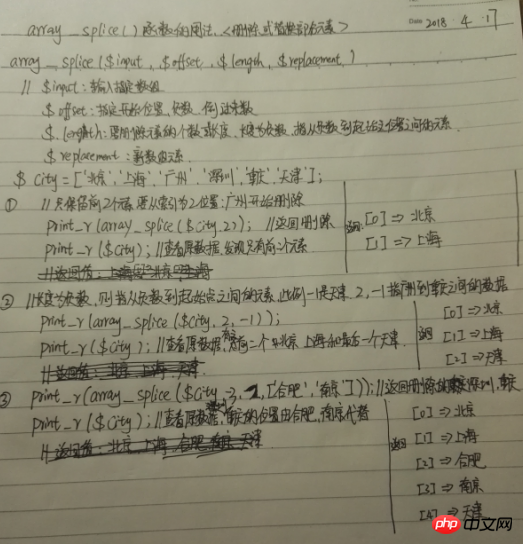 2018.4.17
array_splice()函数的用法.<删除或替换部分元素>
array_splice($input, $offset, $length, $replacement)
// $input:输入指定数组
$offset:指定开始位置,负数,倒过来数
$length:要删除元素的个数或长度.长度为负数,指从负数到起始位置之间的元素.
$replacement:新数组元素.
$city=['北京','上海','广州','深圳','重庆','天津'];
① //只保留前2个元素 要从索引为2位置:广州开始删除
print_r(array_splice($city,2)); //返回删除
print_r($city); //查看原数据,发现只有前二个元素
[0] => 北京
[1] => 上海
② //长度为负数,则指从负数到起始点之间的元素,此例-1是天津 2,-1指广州到重庆之间的数据
print_r(array_splice($city,2,-1));
print_r($city); //查看原数据,前二个北京 上海和最后一个天津
返回
[0] => 北京
[1] => 上海
[2] => 天津
③ print_r(array_splice($city,['合肥','南京'])); //返回删除的深圳,重庆
print_r($city); //查看原数据,重庆的位置由合肥,南京代替
返回
[0] => 北京
[1] => 上海
[2] => 合肥
[3] => 南京
[4] => 天津
php中文网